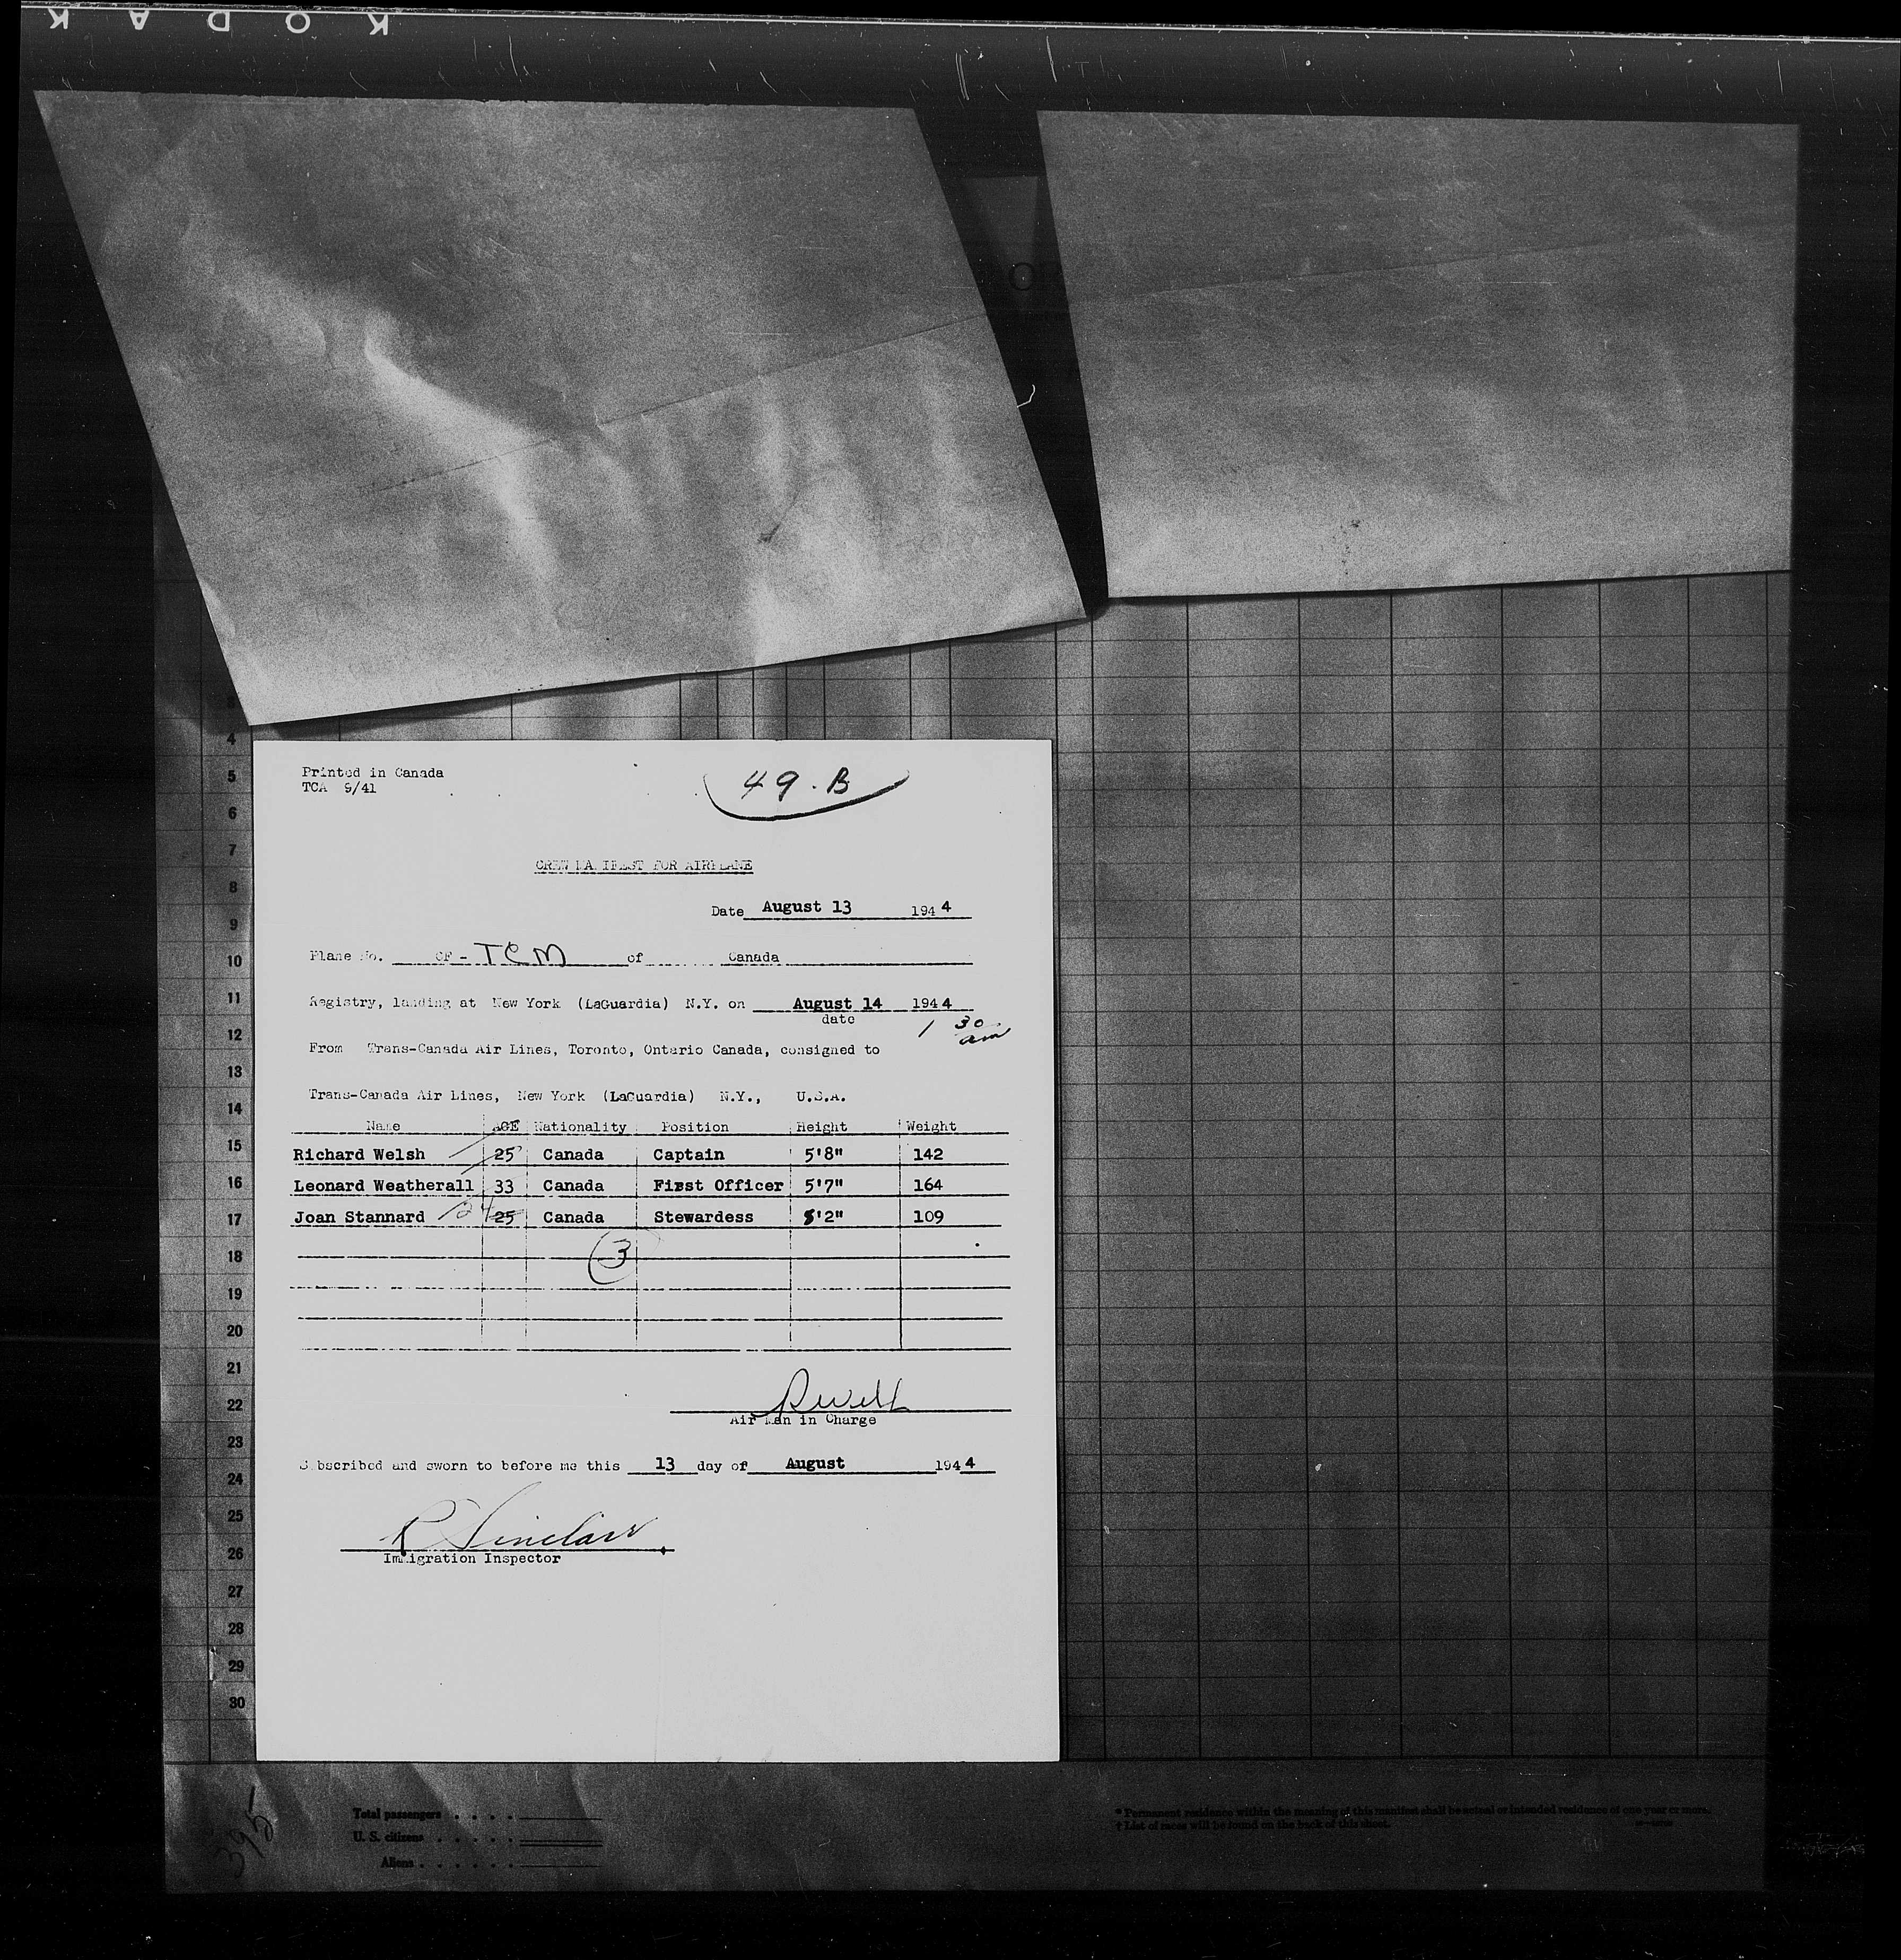 KODAK
Printed in Canada
TCA 9/41
49.B
CREW MANIFEST FOR AIRPLANE
Date August 13 1944
Plane No. CF-TCM of Canada
Registry, landing at New York (LaGuardia) N.Y. on August 14 1944
date
1 30 am
From Trans-Canada Air Lines, Toronto, Ontario Canada, consigned to
Trans-Canada Air Lines, New York (LaGuardia) N.Y., U.S.A.
Name AGE Nationality Position Height Weight
Richard Welsh 25 Canada Captain 5'8" 142
Leonard Weatherall 33 Canada First Officer 5'7" 164
Joan Stannard 24 25 Canada Stewardess 5'2" 109
3
Air Man in Charge
Subscribed and sworn to before me this 13 day of August 1944
R Sinclair
Immigration Inspector
4
5
6
7
8
9
10
11
12
13
14
15
16
17
18
19
20
21
22
23
24
25
26
27
28
29
30
395
Total passengers . . . .
U. S. citizens . . . . .
Aliens . . . . . .
* Permanent residence within the meaning of this manifest shall be actual or intended residence of one year or more.
† List of races will be found on the back of this sheet.